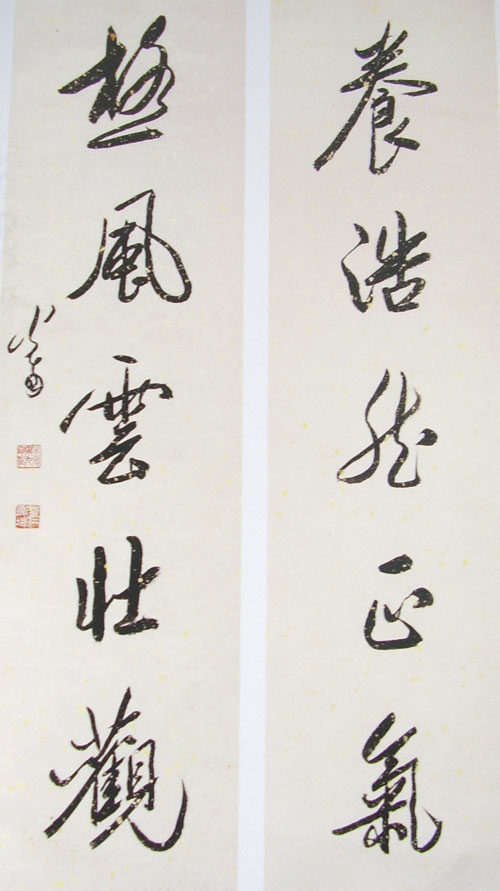 養浩然正氣
極風雲壯觀
溥儒